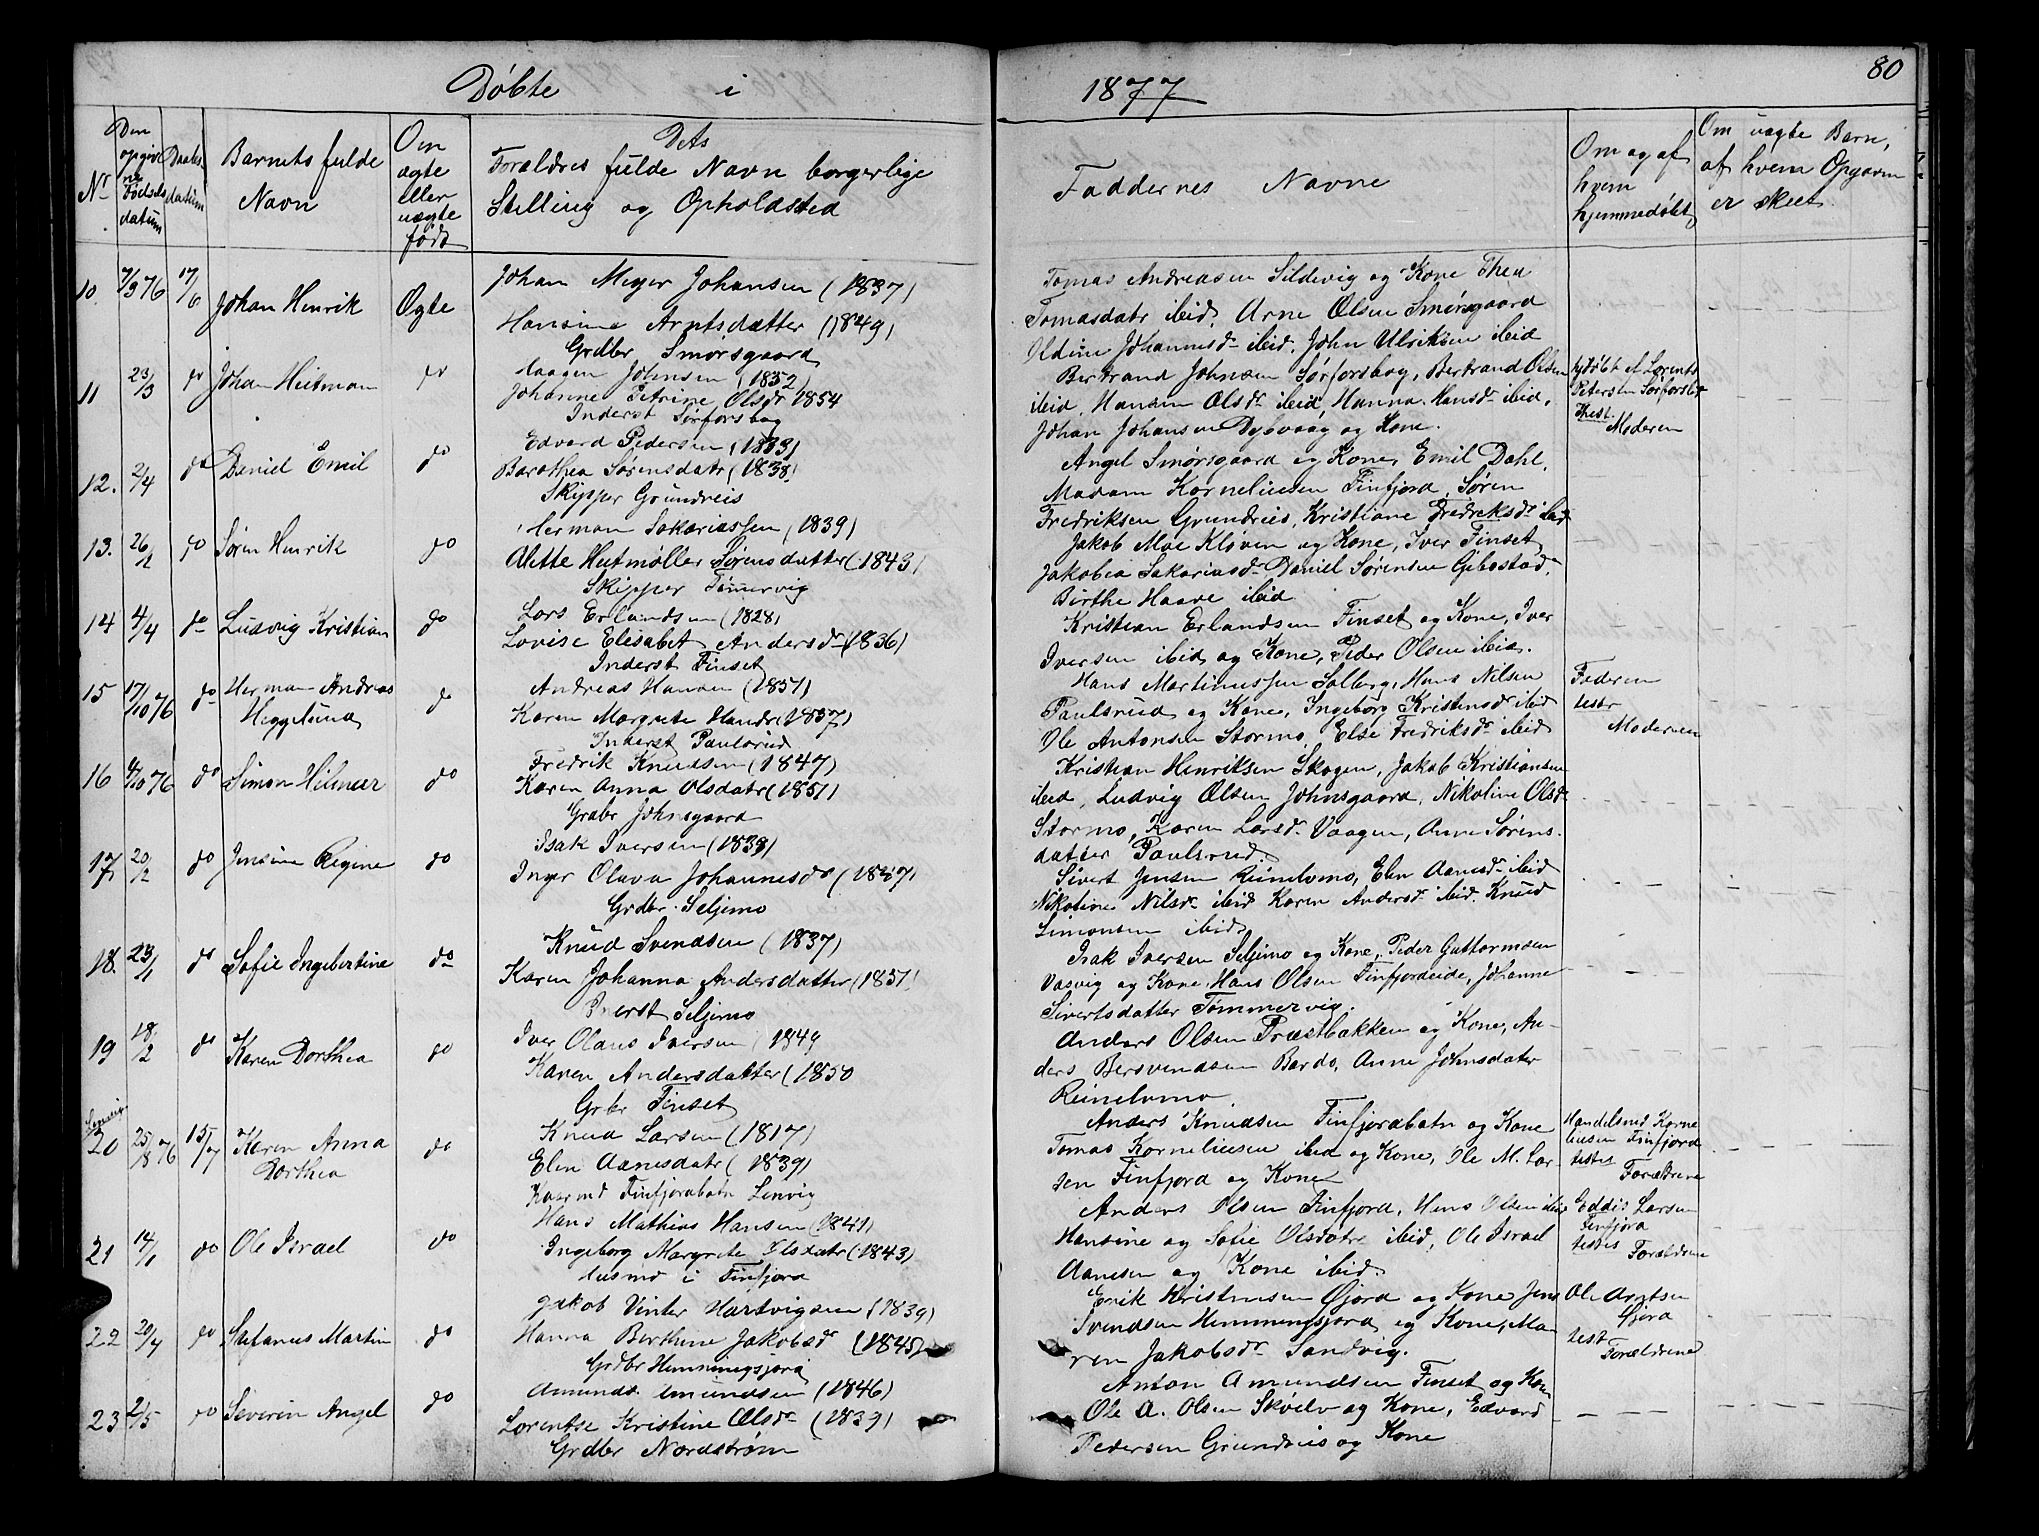 80
Døbte i 1877
Nr
Den opgivne Fødselsdatum
Daabsdatum
Barnets fulde Navn
Om ægte eller uægte født
Dets Forældres fulde Navn borgerlige Stilling og Opholdsted
Faddernes Navne
Om og af hvem hjemmedøbt
Om uægte Barn, af hvem Opgaven er skeet
10 7/3 76 17/6 Johan Henrik Ægte
Johan Meyer Johansen (1837)
Hansine Arntsdatter (1849)
Grdbr Smørsgaard
Tomas Andreasen Sildvig og Kone Thea
Tomasdatr ibid, Arne Olsen Smørsgaard
Oldine Johannesdr ibid, John Ulriksen ibid
11 23/3 do Johan Heitman do
Aagen Johnsen (1832)
Johanne Petrine Olsdr 1854
Inderst Sørforsbag
Bertrand Johnsen Sørforsbag, Bertrand Olsen
ibid, Hansen Olsdr ibid, Hanna Hansdr ibid,
Johan Johansen Dybvaag og Kone.
Petersen Sørforsbg
Moderen
12. 2/4 do Daniel Emil do
Edvard Pedersen (1833)
Barothea Sørensdatr (1838)
Skipper Grundreis
Angel Smørsgaard og Kone, Emil Dahl,
Madam Korneliusen Finfjord, Søren
Fredriksen Grundreis, Kristiane Fredriksdr ibid
13. 26/2 do Søren Henrik do
Herman Sakariassen (1839)
Alette Heitmøller Sørensdatter (1843)
Skipper Tømervig
Jakob Moe Kløven og Kone, Iver Finset
Jakobia Sakariasdr Daniel Sørensen Gibostad,
Birthe Haave ibid
14 4/4 do Ludvig Kristian do
Lars Erlandsen (1828)
Lovise Elesabet Andersdr (1836)
Inderst Finset
Kristian Erlandsen Finset og Kone, Iver
Iversen ibid og Kone, Peder Olsen ibid.
15 17/10 76 do Herman Andreas Heggelund do
Andreas Hansen (1851)
Karen Margrete Hansdr (1837)
Inderst Paulsrud
Hans Martinussen Solberg, Hans Nilsen
Paulsrud og Kone, Ingeborg Kristensdr ibid
Ole Antonsen Stormo, Else Fredriksdr ibid
Faderen
testr
Moderen
16 4/10 76 do Simon Hilmar do
Fredrik Knudsen (1847)
Karen Anna Olsdatr (1851)
Grdbr Johnsgaard
Kristian Henriksen Skogen, Jakob Kristiansen
ibid, Ludvig Olsen Johnsgaard, Nikoline Olsdr
Stormo, Karen Larsdr Vaagen, Anne Sørens-
datter Paulsrud.
17 20/2 do Jensine Regine do
Isak Iversen (1838)
Inger Olava Johannesdr (1847)
Grdbr Seljemo
Sivert Jensen Reinelvmo, Elen Aanesdr ibid
Nikoline Nilsdr ibid Karen Andersdr ibid Knud
Simonsen ibid
18. 23/1 do Sofie Ingebertine do
Knud Svendsen (1837)
Karen Johanna Andersdatter (1851)
Inderst Seljemo
Isak Iversen Seljemo og Kone, Peder Guttormsen
Vasvig og Kone, Hans Olsen Finfjordeide, Johanne
Sivertsdatter Tømmervig.
19 18/2 do Karen Dorthea do
Iver Olaus Iversen 1849
Karen Andersdatter (1850
Grbr Finset
Anders Olsen Præstbakken og Kone, An-
ders Bersvendsen Bardo, Anne Johnsdater
Reinelvmo
20 25/8 76 15/7 Karen Anna Dorthea do
Knud Larsen (1817)
Elen Aanesdatr (1839)
Kaarmd Finfjorabotn Lenvig
Anders Knudsen Finfjorabotn og Kone
Tomas Korneliusen ibid og Kone, Ole M. Lar-
sen Finfjord og Kone
Handelsmd Korne
liusen Finfjord
testes
Forældrene
21 14/1 do Ole Israel do
Hans Mathias Hansen (1841)
Ingeborg Margrete Olsdatr (1843)
Husmd i Finfjord
Anders Olsen Finfjord, Hans Olsen ibid
Hansine og Sofie Olsdatre ibid, Ole Israel
Aanesen og Kone ibid.
Eddis Larsen
Finfjora
testes
Forældrene
22 20/4 do Stefanus Martin do
Jakob Vinter Hartvigsen (1839)
Hanna Berthine Jakobsdr (1845)
Grdbr Hemmingsjord
Erik Kristensen Gjøra og Kone Jens
Svendsen Hemmingsjord og Kone, Ma
ren Jakobsdr Sandvig.
Ole Arntsen
Gjøra
test
Forældrene
23 21/5 do Severin Angel do
Amunds. Amundsen (1846)
Lorentse Kristine Olsdr (1839)
Grdbr Nordstrøm
Anton Amundsen Finset og Kone
Ole A. Olsen Skøelv og Kone, Edvard
Pedersen Grundreis og Kone